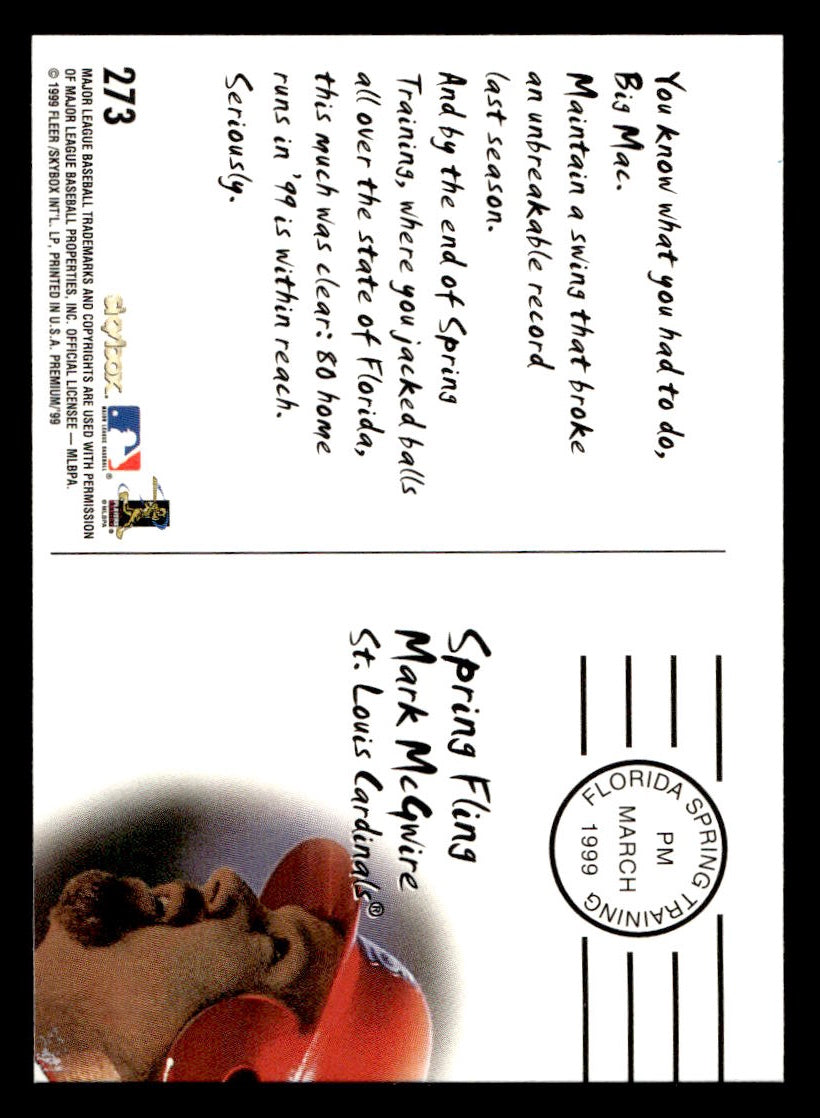 You know what you had to do,
Big Mac.
Maintain a swing that broke
an unbreakable record
last season.
And by the end of Spring
Training, where you jacked balls
all over the state of Florida,
this much was clear: 80 home
runs in '99 is within reach.
Seriously.
273
skybox.
MAJOR LEAGUE BASEBALL ®
© MLBPA
MAJOR LEAGUE BASEBALL TRADEMARKS AND COPYRIGHTS ARE USED WITH PERMISSION
OF MAJOR LEAGUE BASEBALL PROPERTIES, INC. OFFICIAL LICENSEE — MLBPA.
© 1999 FLEER/SKYBOX INT'L. LP, PRINTED IN U.S.A. PREMIUM/'99
FLORIDA SPRING TRAINING
PM
MARCH
1999
Spring Fling
Mark McGwire
St. Louis Cardinals®